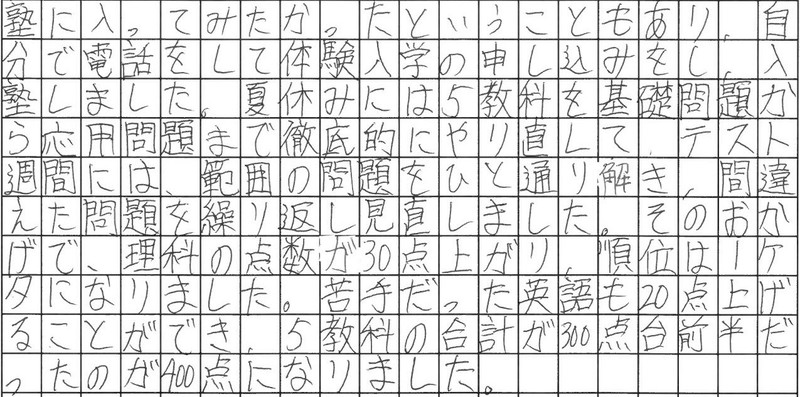 塾に入ってみたかったということもあり、自
分で電話をして体験入学の申し込みをし、入
塾しました。夏休みには5教科を基礎問題か
ら応用問題まで徹底的にやり直して、テスト
週間には、範囲の問題をひと通り解き、間違
えた問題を繰り返し見直しました。そのおか
げで、理科の点数が30点上がり、順位は1ケ
タになりました。苦手だった英語も20点上げ
ることができ、5教科の合計が300点台前半だ
ったのが400点になりました。